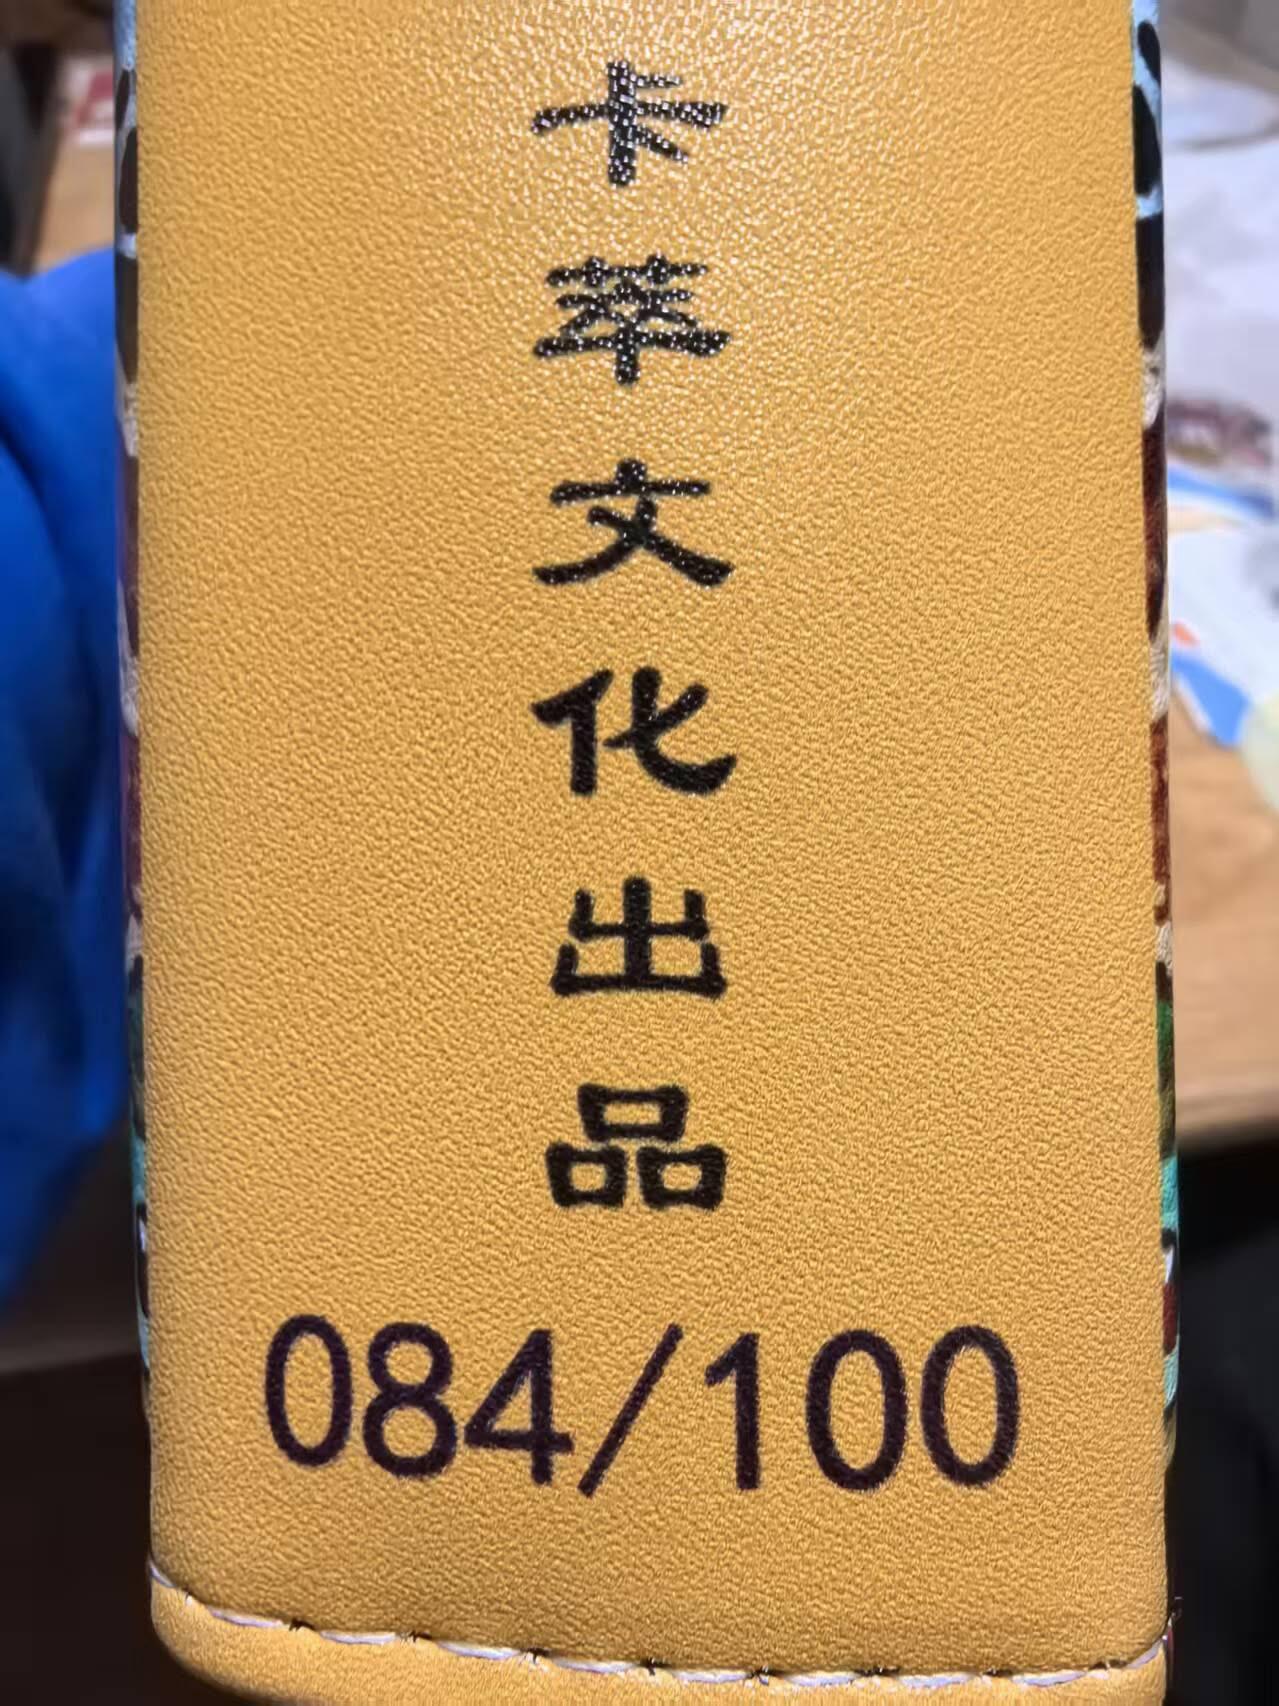 卡萃文化出品
084/100